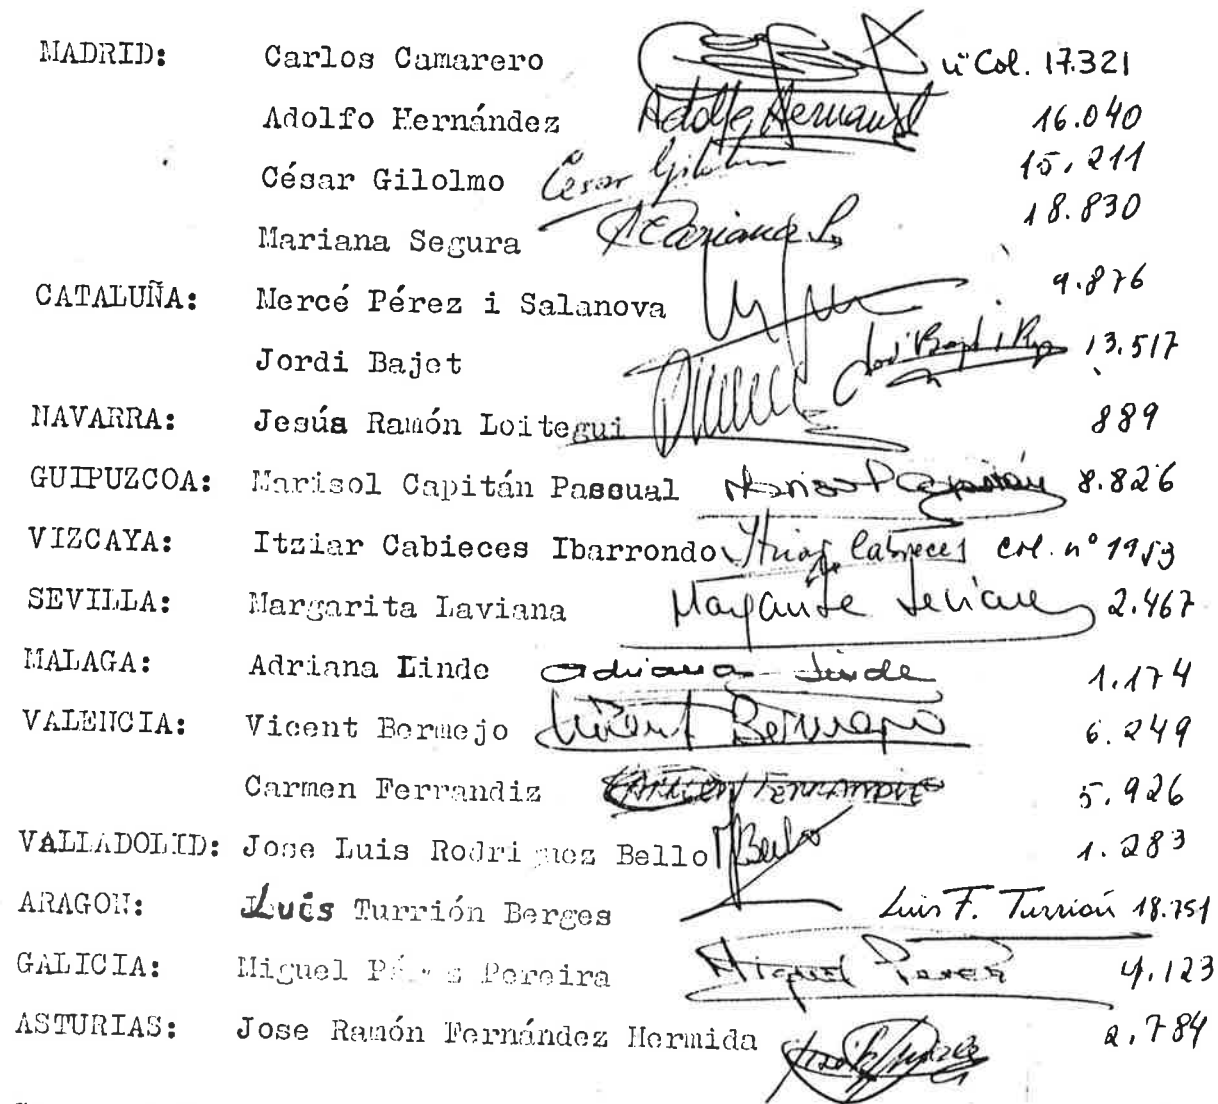 MADRID: Carlos Camarero nº Col. 17.321
Adolfo Hernández Adolfo Hernández 16.040
César Gilolmo César Gilolmo 15.211
Mariana Segura Mariana S. 18.830
CATALUÑA: Mercé Pérez i Salanova 9.876
Jordi Bajet 13.517
NAVARRA: Jesús Ramón Loitegui 889
GUIPUZCOA: Marisol Capitán Pascual Marisol Capitán 8.826
VIZCAYA: Itziar Cabieces Ibarrondo Itziar Cabieces Col. nº 1953
SEVILLA: Margarita Laviana Margarita Laviana 2.467
MALAGA: Adriana Linde Adriana Linde 1.174
VALENCIA: Vicent Bermejo Vicent Bermejo 6.249
Carmen Ferrandiz Carmen Ferrandiz 5.926
VALLADOLID: Jose Luis Rodriguez Bello Bello 1.283
ARAGON: Luis Turrión Berges Luis F. Turrión 18.751
GALICIA: Miguel Pereira Miguel Perez 4.123
ASTURIAS: Jose Ramón Fernández Hermida 2.784